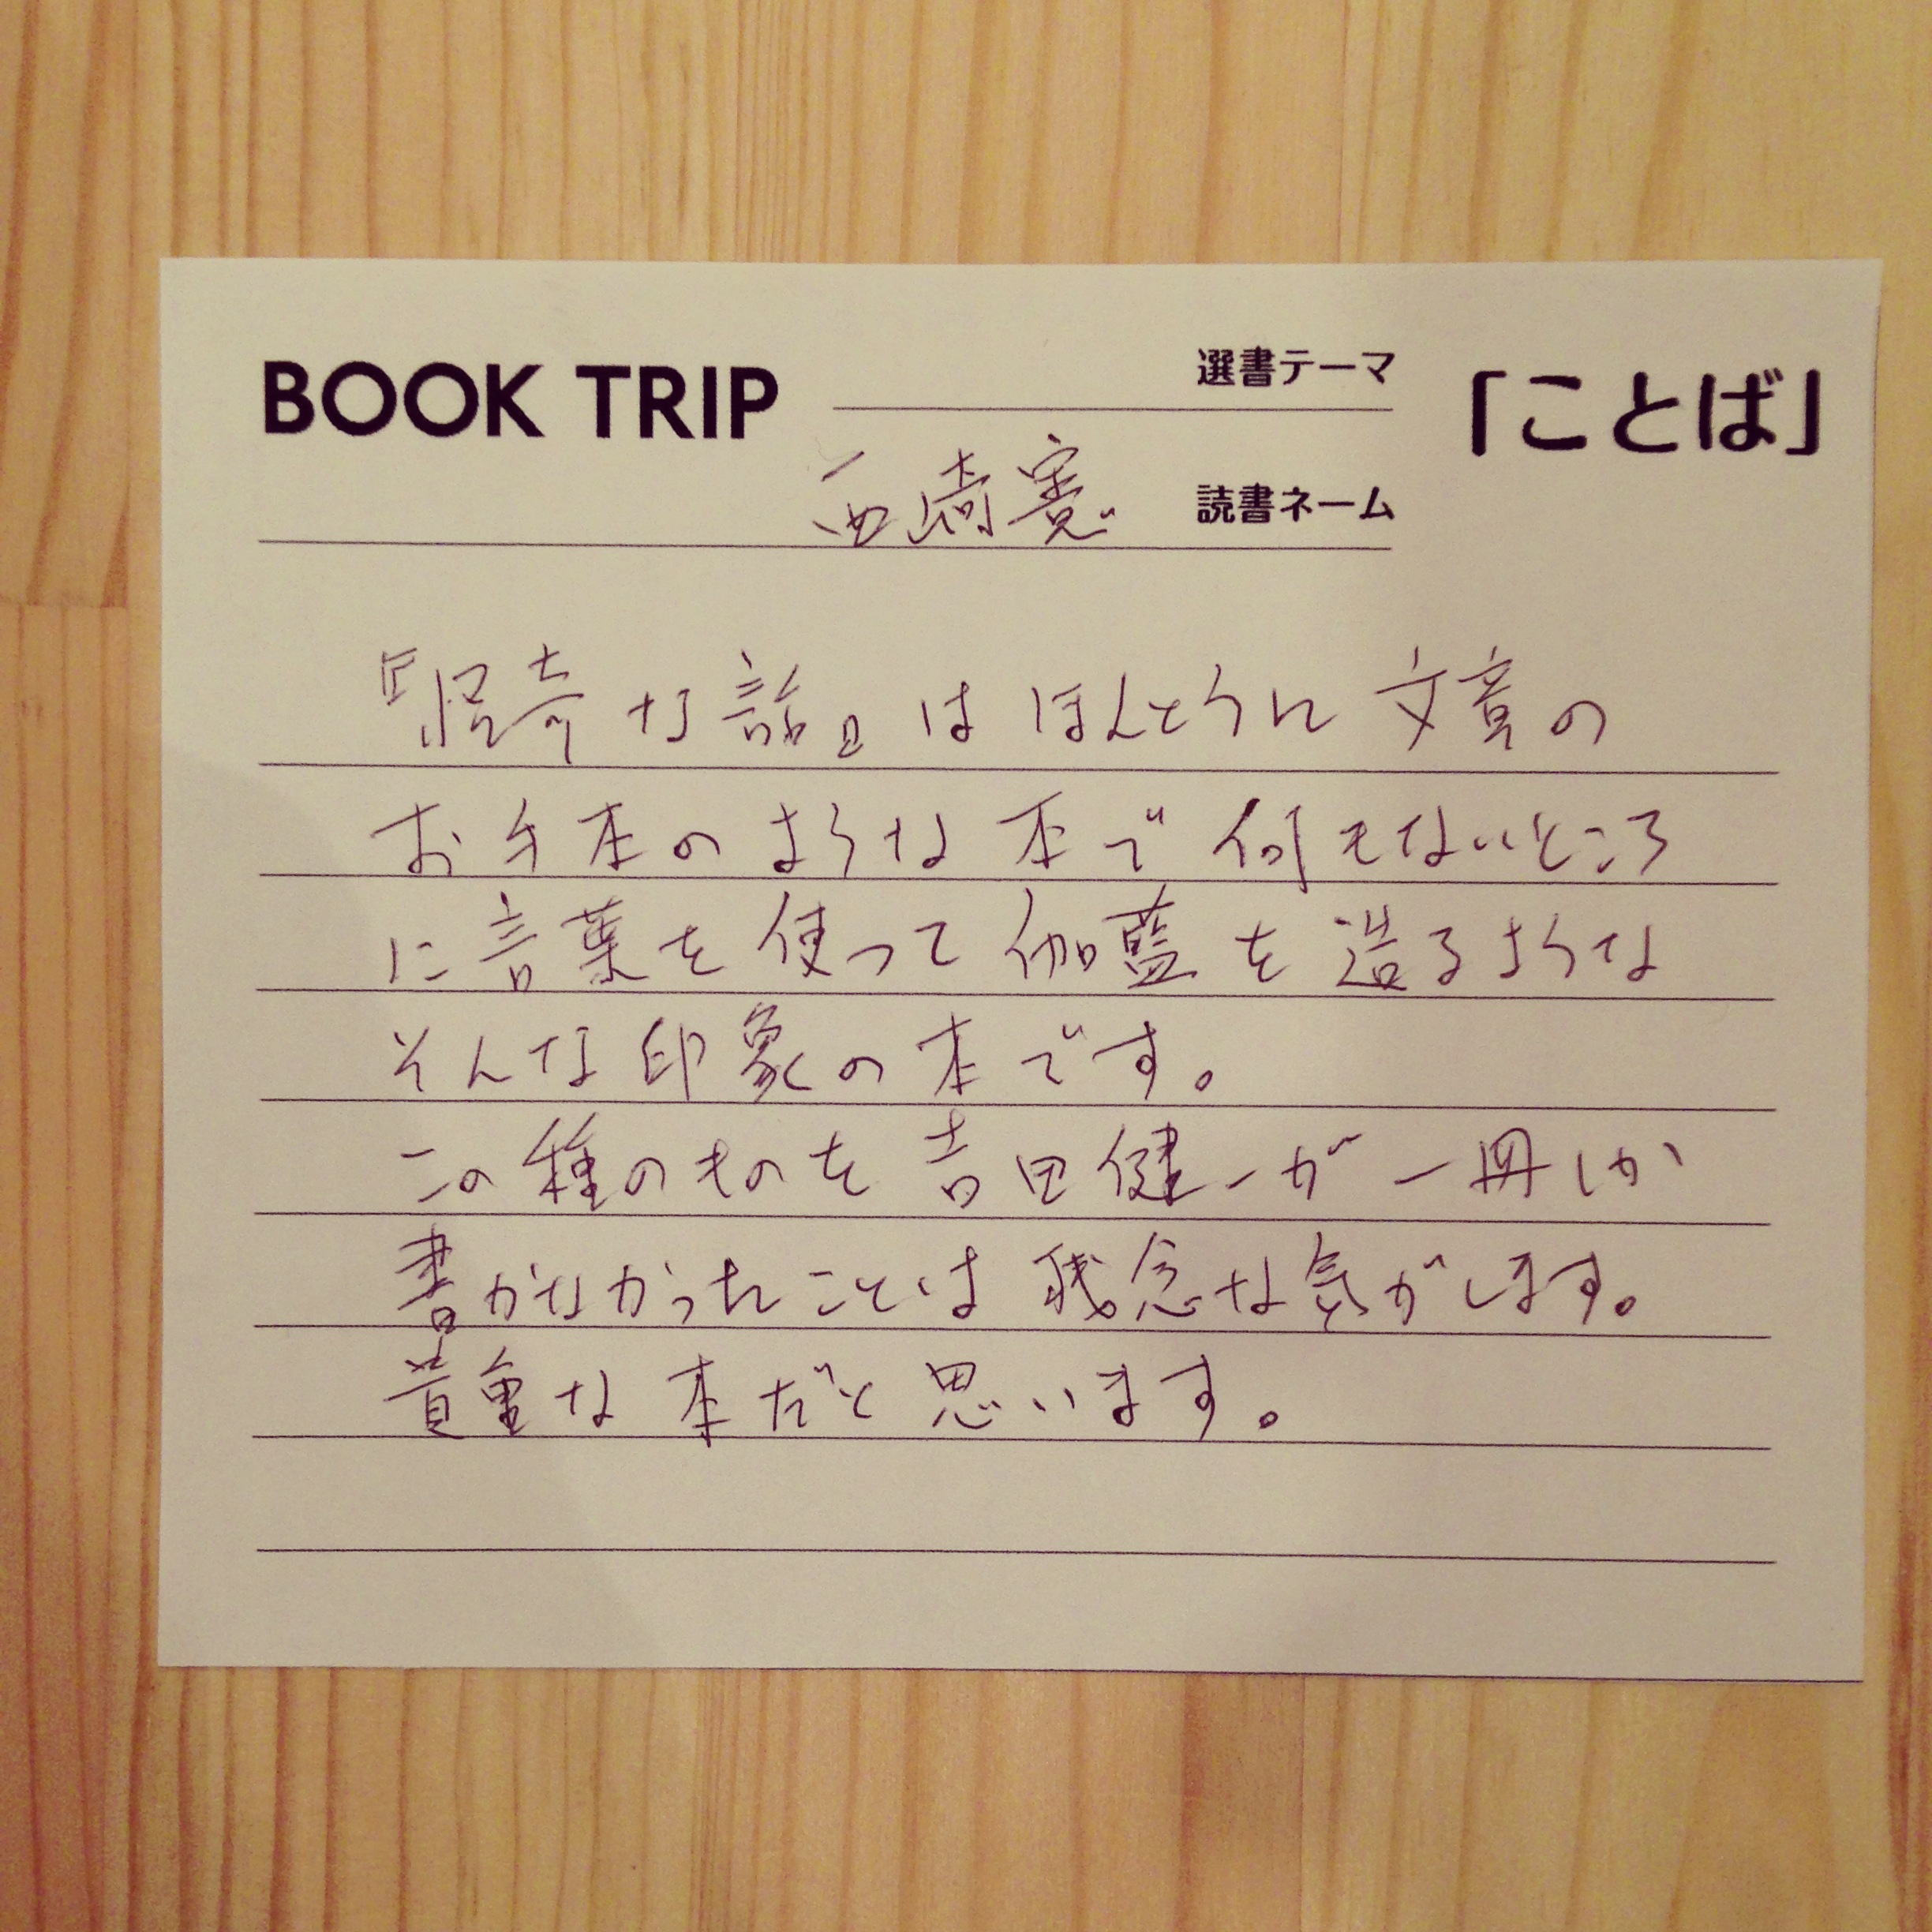 BOOK TRIP
選書テーマ
「ことば」
西崎憲
読書ネーム
『怪奇な話』はほんとうに文章の
お手本のような本で何もないところ
に言葉を使って伽藍を造るような
そんな印象の本です。
この種のものを吉田健一が一冊しか
書かなかったことは残念な気がします。
貴重な本だと思います。